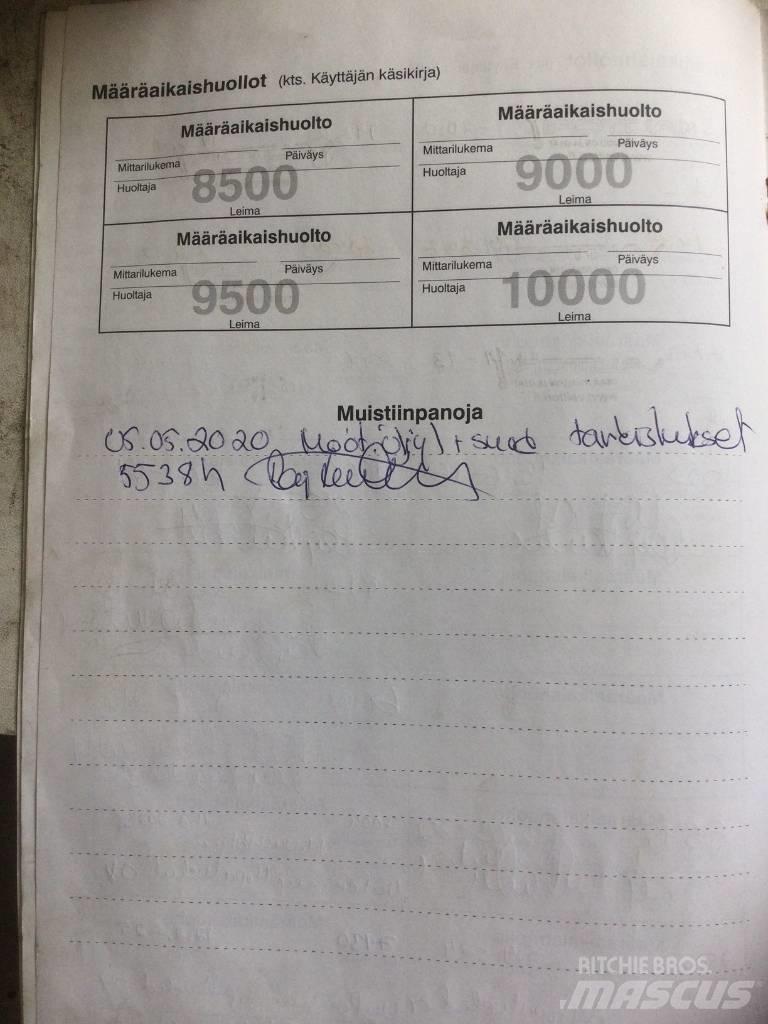 Määräaikaishuollot (kts. Käyttäjän käsikirja)
Määräaikaishuolto
Mittarilukema Päiväys
Huoltaja 8500
Leima
Määräaikaishuolto
Mittarilukema Päiväys
Huoltaja 9000
Leima
Määräaikaishuolto
Mittarilukema Päiväys
Huoltaja 9500
Leima
Määräaikaishuolto
Mittarilukema Päiväys
Huoltaja 10000
Leima
Muistiinpanoja
05.05.2020 + tarkistukset
5538h
RITCHIE BROS.
MASCUS